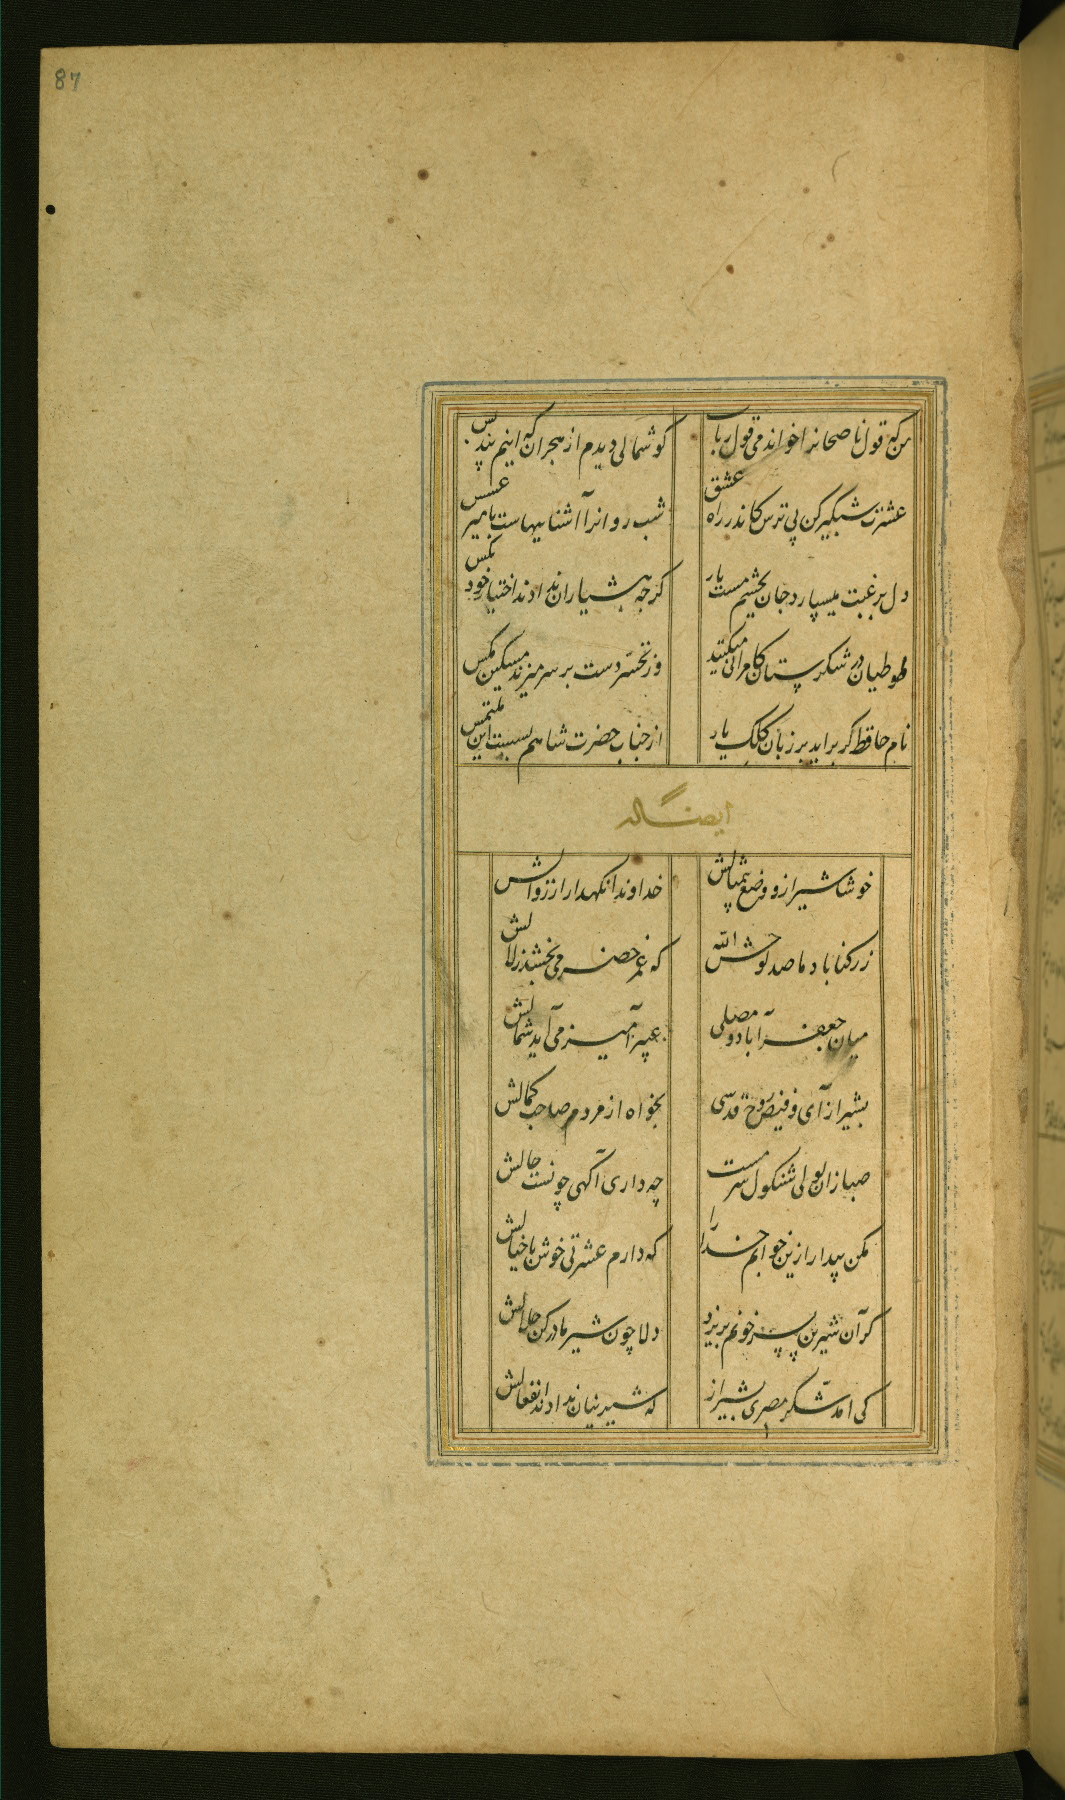 87
من که قول ناصحانرا خواندمی قول رباب
کوشمالی دیدم از هجران که اینم پند بس
عشرت شبکیر کن بی ترس کاندر راه عشق
شب روانرا آشناییهاست با میر عسس
دل برغبت میسپارد جان بچشم مست یار
کرچه هشیاران ندادند اختیار خود بکس
طوطیان در شکرستان کامرانی میکنند
وز تحسر دست بر سر میزند مسکین مکس
نام حافظ کر براید بر زبان کلک یار
از جناب حضرت شاهم بسست این ملتمس
ایضا له
خوشا شیراز و وضع بیمثالش
خداوندا نکهدار از زوالش
ز رکناباد ما صد لوحش الله
که عمر خضر می بخشد زلالش
میان جعفرآباد و مصلی
عبیرآمیز می آید شمالش
بشیراز آی و فیض روح قدسی
بخواه از مردم صاحب کمالش
صبا زان لولی شنکول سرمست
چه داری آکهی چونست حالش
مکن بیدار ازین خوابم خدا را
که دارم عشرتی خوش با خیالش
کر آن شیرین پسر خونم بریزد
دلا چون شیر مادر کن حلالش
کی امد شکر مصری بشیراز
که شیرنیان ندادند انفعالش